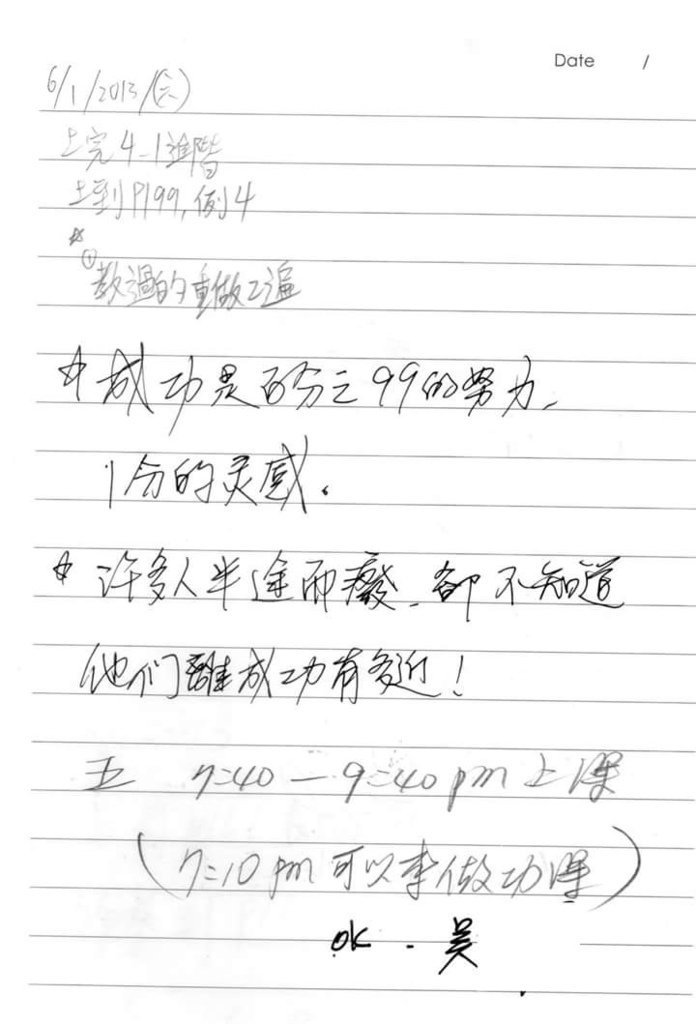 Date /
6/1/2013/(六)
上完4-1進階
上到P199,例4
☆
① 教過的重做2遍
☆ 成功是百分之99的努力、
1分的灵感.
☆ 许多人半途而廢、卻不知道
他们離成功有多近!
五 7=40 — 9=40 pm 上課
(7=10 pm 可以來做功課)
OK . 吴